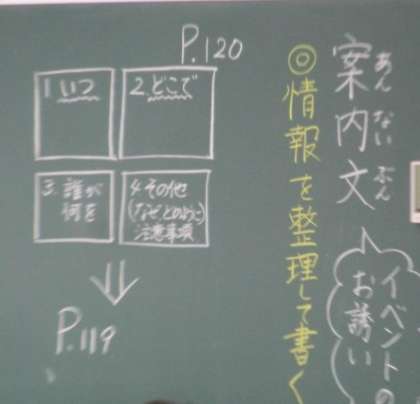 案内文
あんないぶん
イベントの
お誘い
◎情報を整理して書く
P.120
1.いつ
2.どこで
3.誰が
何を
4.その他
(なぜ、どのように)
注意事項
P.119